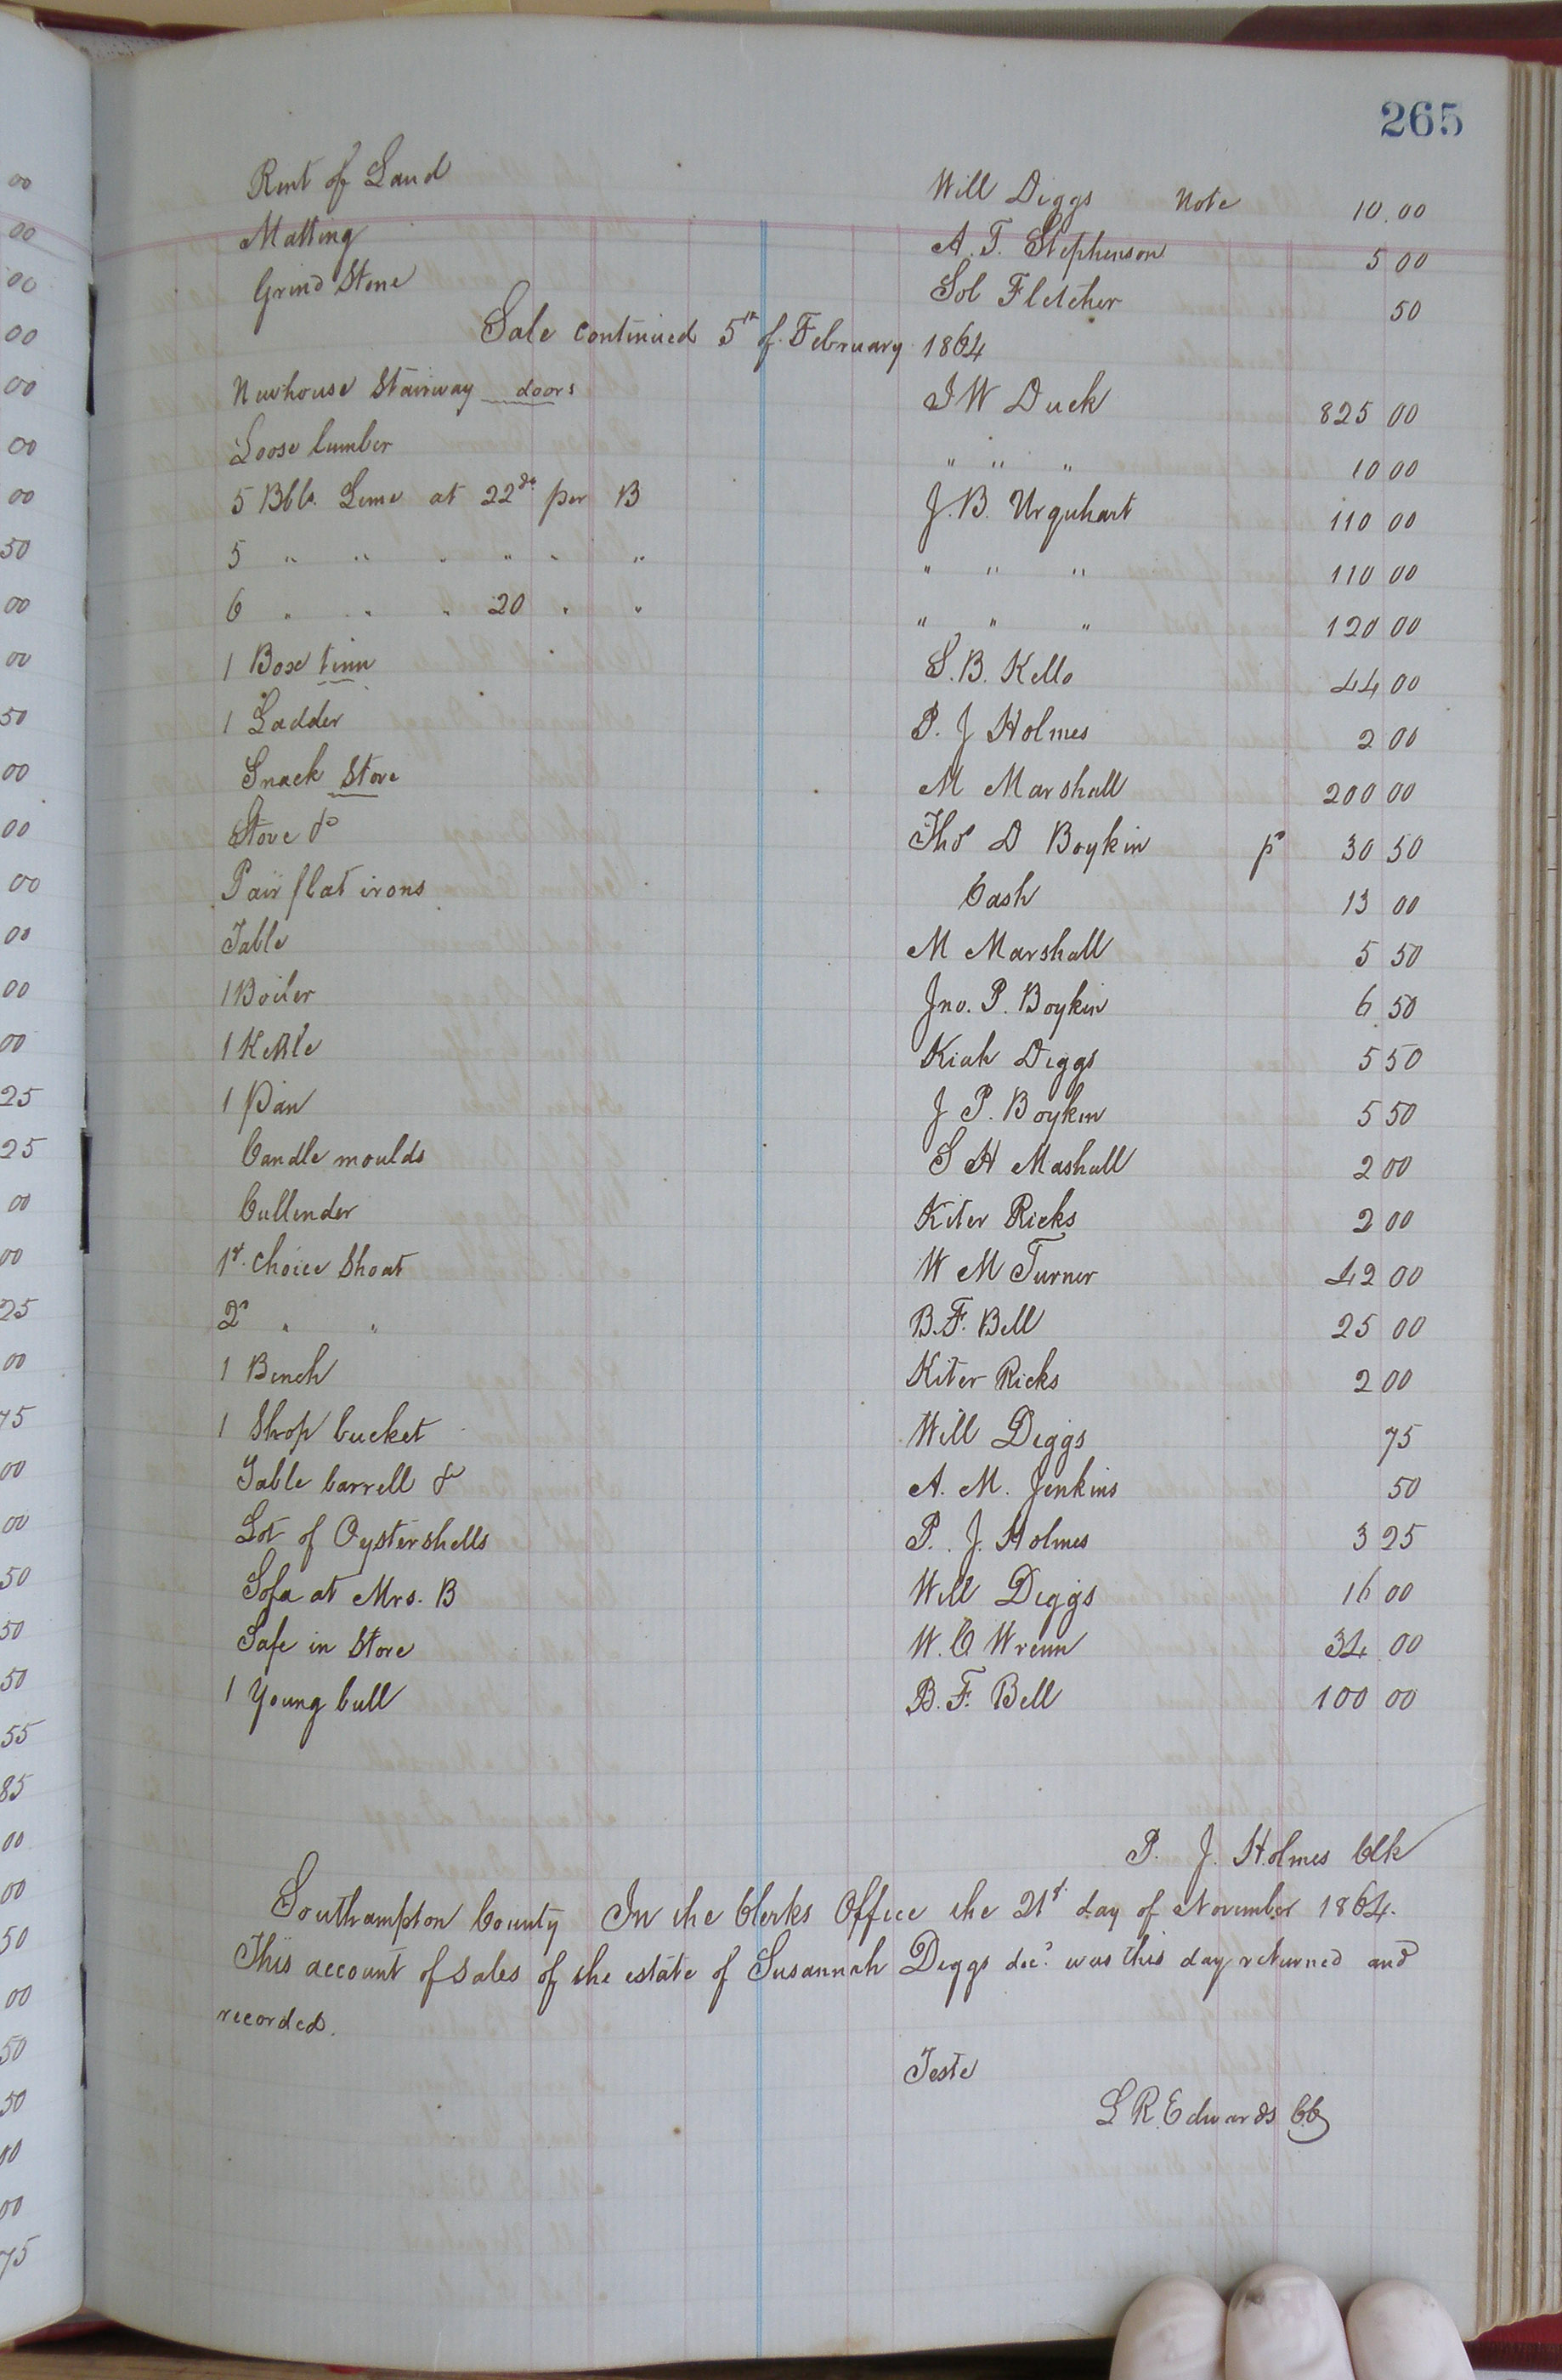 265
Rent of Land Will Diggs Note 10.00
Matting A. T. Stephenson 5 00
Grind Stone Sol Fletcher 50
Sale continued 5th of February 1864
Newhouse Stairway doors J W Duck 825 00
Loose lumber " " " 10 00
5 Bbls. Lime at 22 per B J. B. Urquhart 110 00
5 " " " " " " " " " 110 00
6 " " " 20 " " " " " 120 00
1 Box tinn S. B. Kello 44 00
1 Ladder P. J Holmes 2 00
Snack Store M Marshall 200 00
Stove do Thos D Boykin pd 30 50
Pair flat irons Cash 13 00
Table M Marshall 5 50
1 Boiler Jno. P. Boykin 6 50
1 Kettle Kiah Diggs 5 50
1 Pan J P. Boykin 5 50
Candle moulds S H Mashall 2 00
Cullender Kiter Ricks 2 00
1st Choice Shoat W M Turner 42 00
2d " " B. F. Bell 25 00
1 Bench Kiter Ricks 2 00
1 Shop bucket Will Diggs 75
Table barrell & A. M. Jenkins 50
Lot of Oystershells P. J. Holmes 3 25
Sofa at Mrs. B Will Diggs 16 00
Safe in Store W. C Wrenn 34 00
1 Young bull B. F. Bell 100 00
P. J. Holmes Clk
Southampton County In the Clerks Office the 21st day of November 1864.
This account of sales of the estate of Susannah Diggs decd was this day returned and
recorded.
Teste
L R. Edwards CC